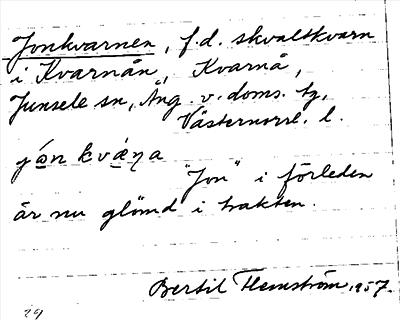 Jonkvarnen, f.d. skvaltkvarn
i Kvarnån, Kvarnå,
Junsele sn, Ång. v. doms. tg,
Västernorrl. l.
jón kvána
"Jon" i förleden
är nu glömd i trakten.
Bertil Flemström, 1957.
29